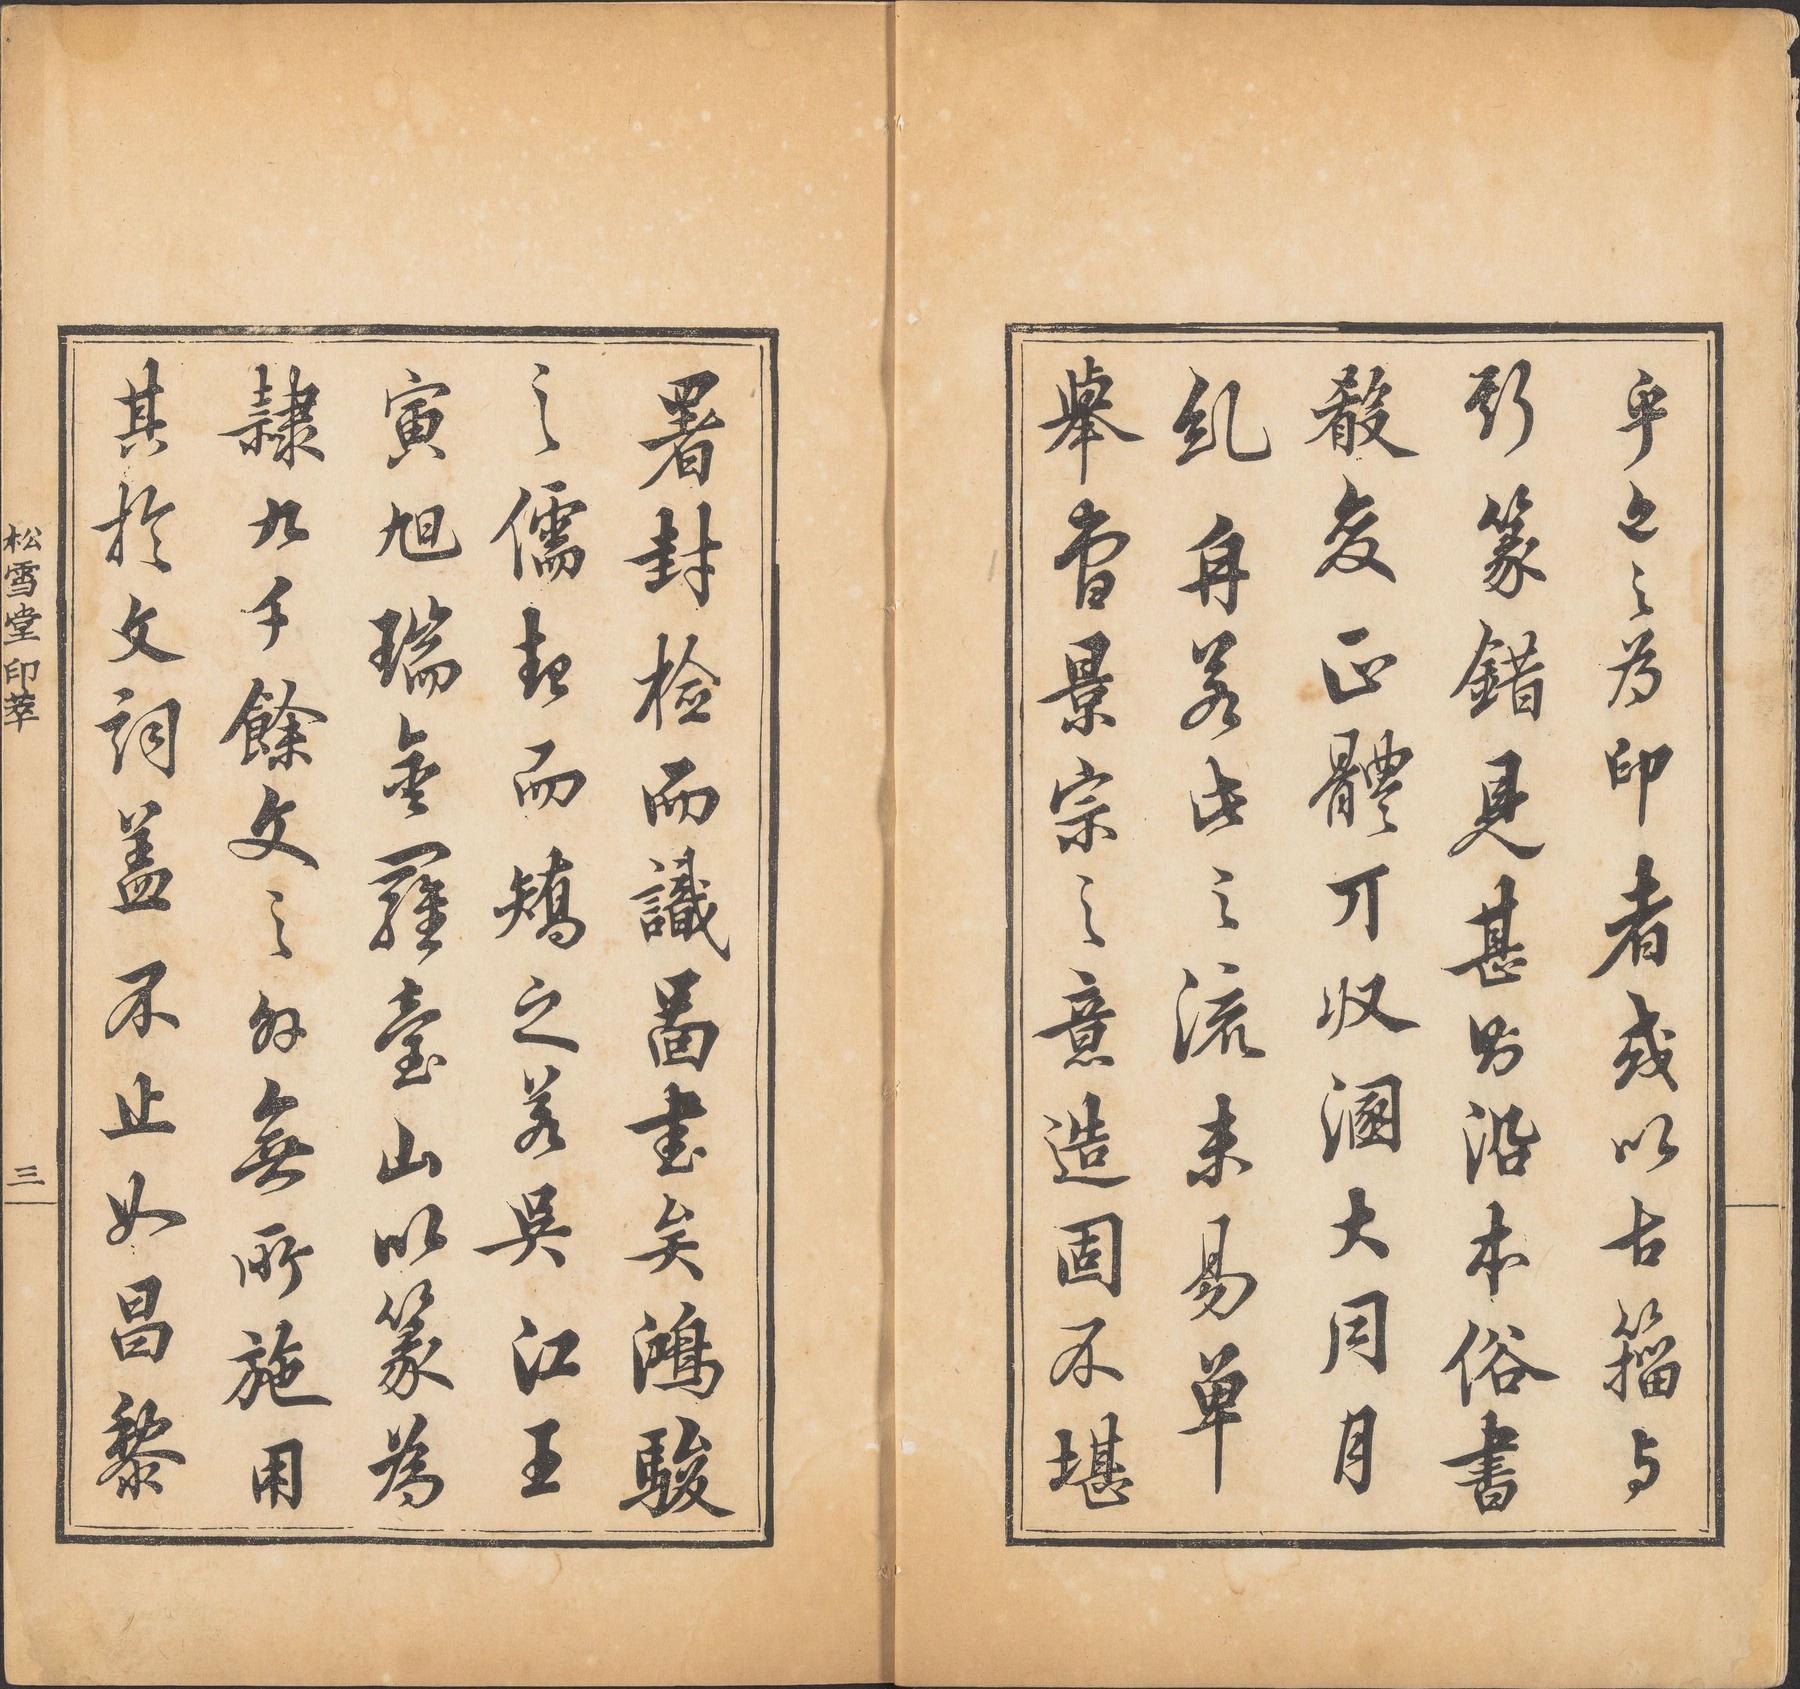 乎今之為印者或以古籀与
斯篆錯見甚則沿本俗書
殽亥正體可收溷大同月
乱舟若此之流未易单
舉曾景宗之意造固不堪
署封檢而識啚書矣鴻駿
之儒起而矯之若吳江王
寅旭瑞金羅臺山以篆為
隸九千餘文之外無所施用
其於文詞盖不止如昌黎
松雪堂印萃
三